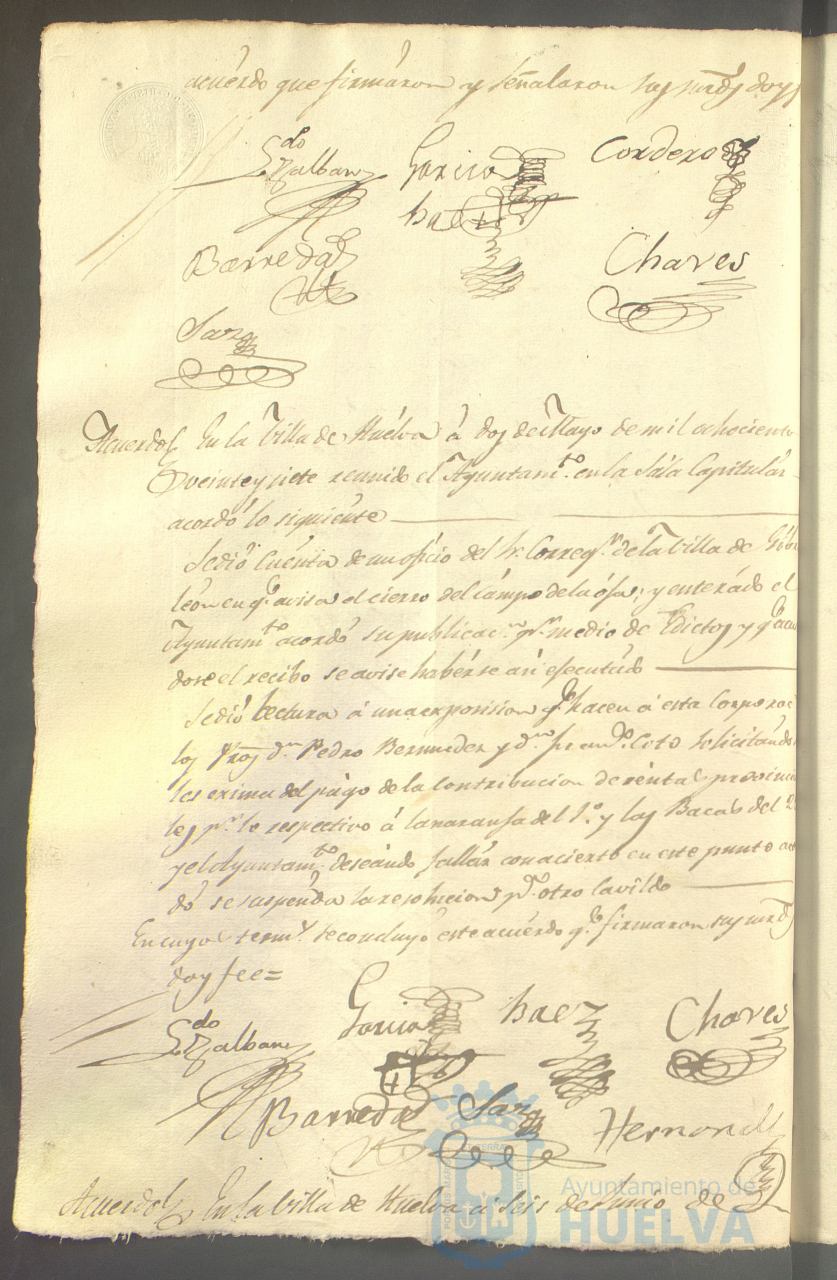 acuérdo que firmáron y señalaron sus mrds doy
Ldo
Zalban
Garcia
Cordero
Baez
Barreda
Chaves
Sanz
Acuerdo En la Villa de Huelva á dos de Mayo de mil ochociento
veinte y siete reunido el Ayuntamto. en la Sala Capitulár
acordó lo siguiente
Se dió Cuénta de un oficio del Sr. Corregr. de la Villa de Gibr
león en qe. avisa el cierro del cámpo de la ósa; y enterádo el
Ayuntamto acordó su publicacn. pr. medio de Edictos y qe. acu
dose el recibo se avise habérse asi efecutádo
Se dió lectura á una exposision qe. hacen á esta Corporac
los Vznos dn. Pedro Bermudez y dn. Coto solicitándo
les exima del págo de la Contribucion de rentas provincia
les pr. lo respectivo á la naranja del 1º. y las Bacas del 2
y el Ayuntamto. deseándo fallár con acierto en este punto a
dó se suspénda la resolucion pa. otro Cavildo
En cuyos termos. se concluyó este acuérdo qe. firmaron sus mrds
doy fee=
Ldo
Zalban
Garcia
Baez
Chaves
Barreda
Sanz
Hernand
Acuerdo En la Villa de Huelva á seis de Junio de
Ayuntamiento de
HUELVA